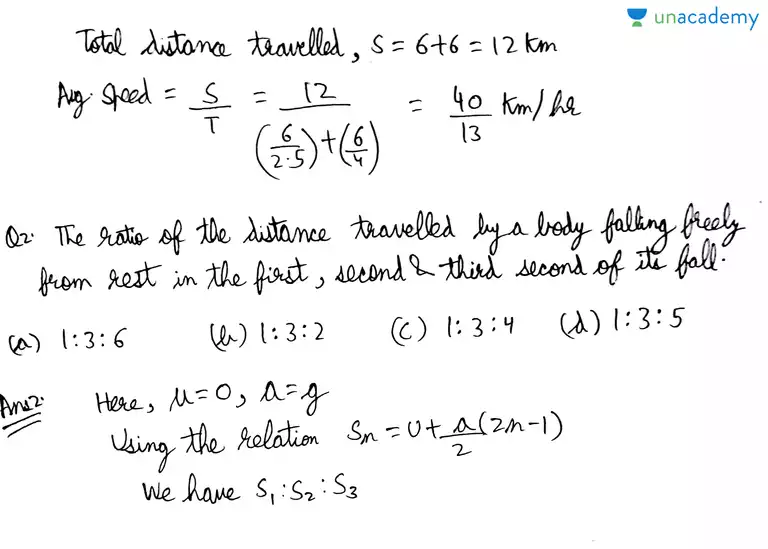 unacademy
Total distance travelled, S = 6+6 = 12 km
Avg. Speed = S/T = 12/((6/2.5)+(6/4)) = 40/13 Km/hr
Q2. The ratio of the distance travelled by a body falling freely
from rest in the first, second & third second of its fall.
(a) 1:3:6 (b) 1:3:2 (c) 1:3:4 (d) 1:3:5
Ans2. Here, u=0, a=g
Using the relation Sn = u + a/2 (2n-1)
We have S1:S2:S3